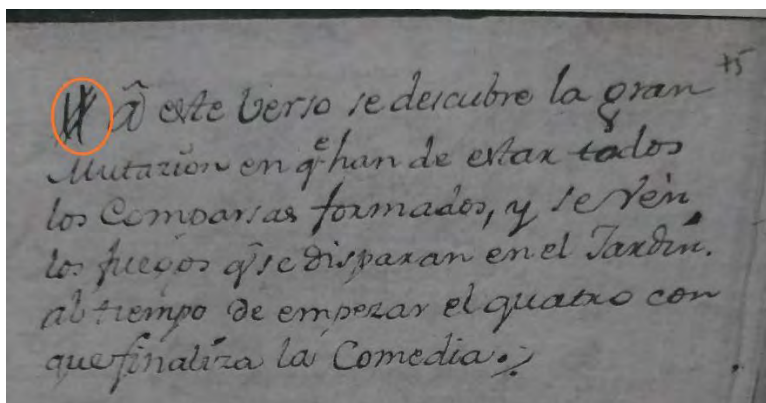 +5
â este Verso se descubre la gran
Mutazion en q̃ han de estar todos
los Comparsas formados, y se vén
los fuegos q̃ se disparan en el Jardin.
al tiempo de empezar el quatro con
que finaliza la Comedia.